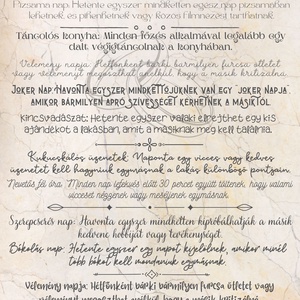 Pizsama nap: Hetente egyszer mindketten egész nap pizsamában
lehetnek, és pihenhetnek vagy közös filmnézést tarthatnak.
Táncolós konyha: Minden főzés alkalmával legalább egy
dalt végigtáncolnak a konyhában.
Vélemény nap: Hétfőnként bárki bármilyen furcsa ötletet
vagy véleményt megoszthat anélkül, hogy a másik kritizálná.
Joker nap: Havonta egyszer mindkettőjüknek van egy "joker napja"
amikor bármilyen apró szívességet kérhetnek a másiktól.
Kincsvadászat: Hetente egyszer valaki elrejthet egy kis
ajándékot a lakásban, amit a másiknak meg kell találnia.
Kukucskálós üzenetek: Naponta egy vicces vagy kedves
üzenetet kell hagyniuk egymásnak a lakás különböző pontjain.
Nevetős fél óra: Minden nap lefekvés előtt 30 percet együtt töltenek, hogy valami
vicceset nézzenek vagy meséljenek egymásnak.
Szerepcserés nap: Havonta egyszer mindketten kipróbálhatják a másik
kedvenc hobbiját vagy tevékenységét.
Bókolás nap: Hetente egyszer egy napot kijelölnek, amikor minél
több bókot kell mondaniuk egymásnak.
Vélemény nap: Hétfőnként bárki bármilyen furcsa ötletet vagy